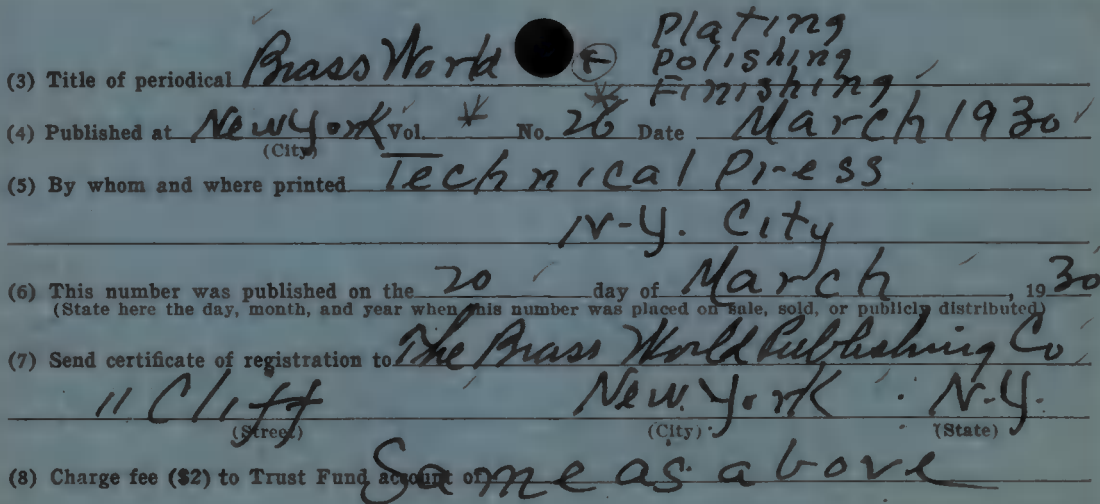 Plating
Polishing
(3) Title of periodical Brass World + Finishing
(4) Published at New York Vol. * No. 26 Date March 1930
(City)
(5) By whom and where printed Technical Press
N-Y. City
(6) This number was published on the 20 day of March, 1930
(State here the day, month, and year when this number was placed on sale, sold, or publicly distributed)
(7) Send certificate of registration to The Brass World Publishing Co
11 Cliff New York N-Y.
(Street) (City) (State)
(8) Charge fee ($2) to Trust Fund account of Same as above